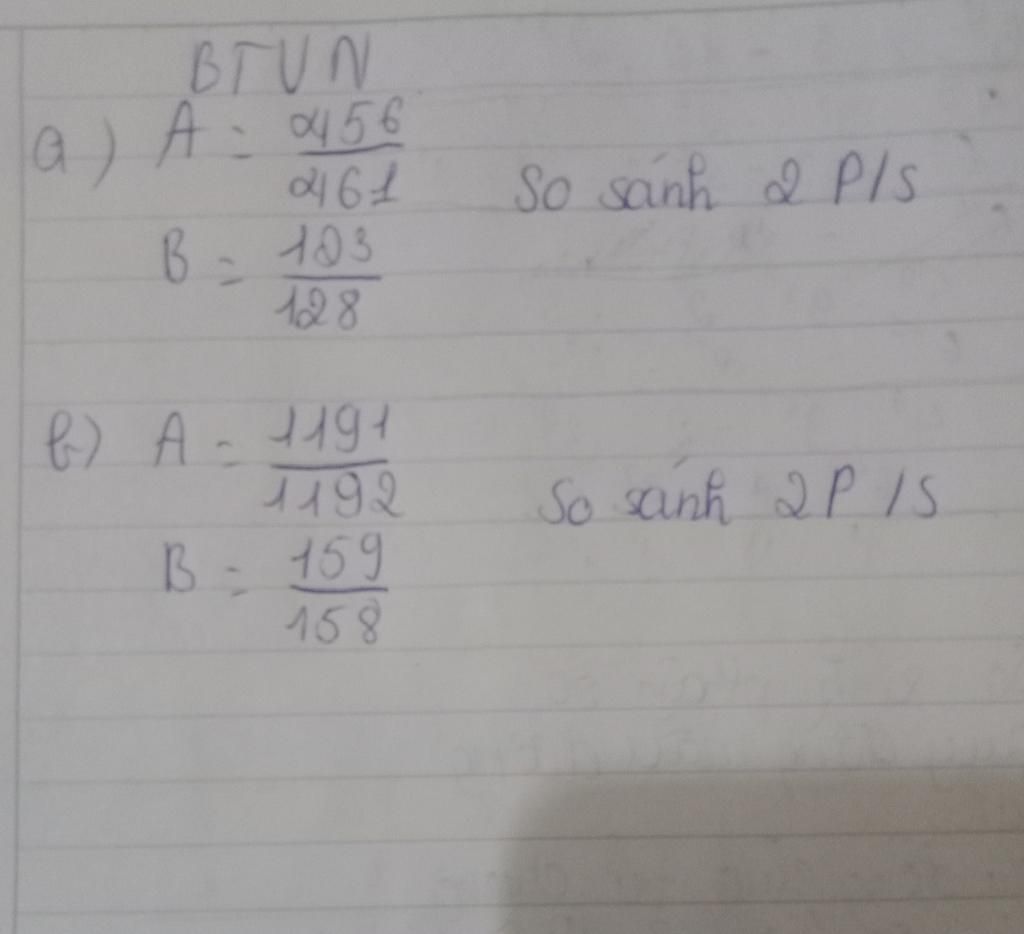 BTVN
a) A = 456/461 So sánh 2 P/S
B = 123/128
b) A = 1191/1192 So sánh 2P/S
B = 159/158